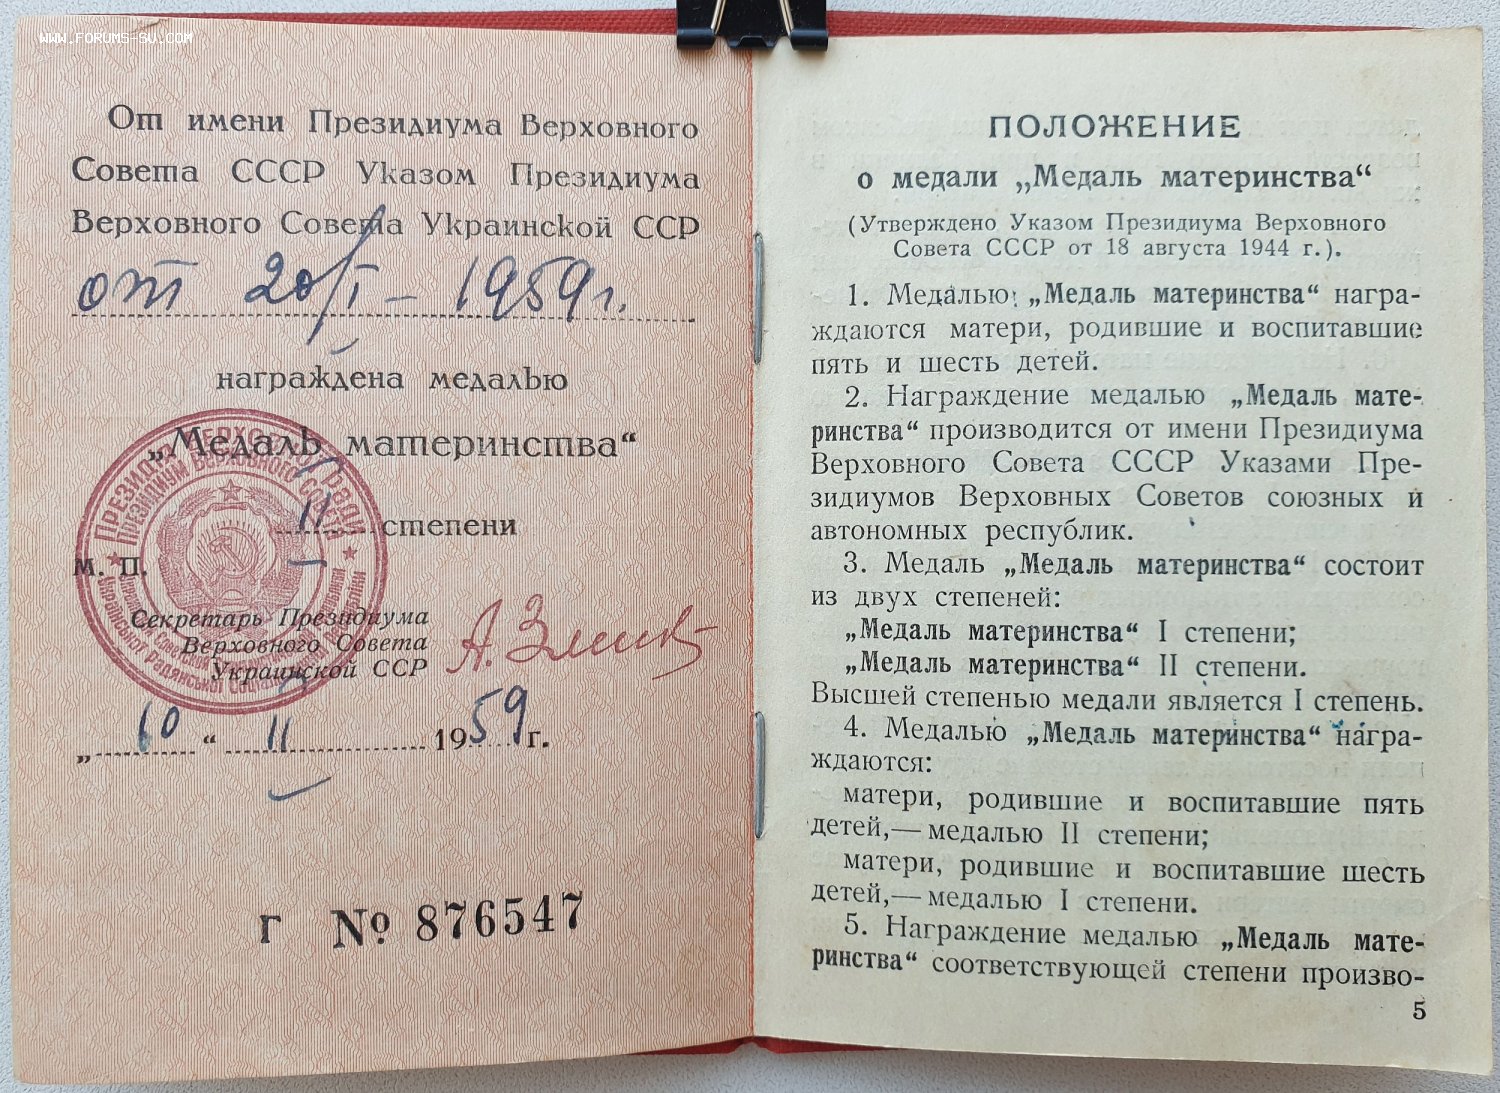 www.forums-su.com
От имени Президиума Верховного
Совета СССР Указом Президиума
Верховного Совета Украинской ССР
от 20/I – 1959 г.
награждена медалью
„Медаль материнства“
II степени
М. П.
Секретарь Президиума
Верховного Совета
Украинской ССР
„10“ II 1959 г.
Г № 876547
ПОЛОЖЕНИЕ
о медали „Медаль материнства“
(Утверждено Указом Президиума Верховного
Совета СССР от 18 августа 1944 г.).
1. Медалью „Медаль материнства“ награ-
ждаются матери, родившие и воспитавшие
пять и шесть детей.
2. Награждение медалью „Медаль мате-
ринства“ производится от имени Президиума
Верховного Совета СССР Указами Пре-
зидиумов Верховных Советов союзных и
автономных республик.
3. Медаль „Медаль материнства“ состоит
из двух степеней:
„Медаль материнства“ I степени;
„Медаль материнства“ II степени.
Высшей степенью медали является I степень.
4. Медалью „Медаль материнства“ награ-
ждаются:
матери, родившие и воспитавшие пять
детей,— медалью II степени;
матери, родившие и воспитавшие шесть
детей,— медалью I степени.
5. Награждение медалью „Медаль мате-
ринства“ соответствующей степени произво-
5